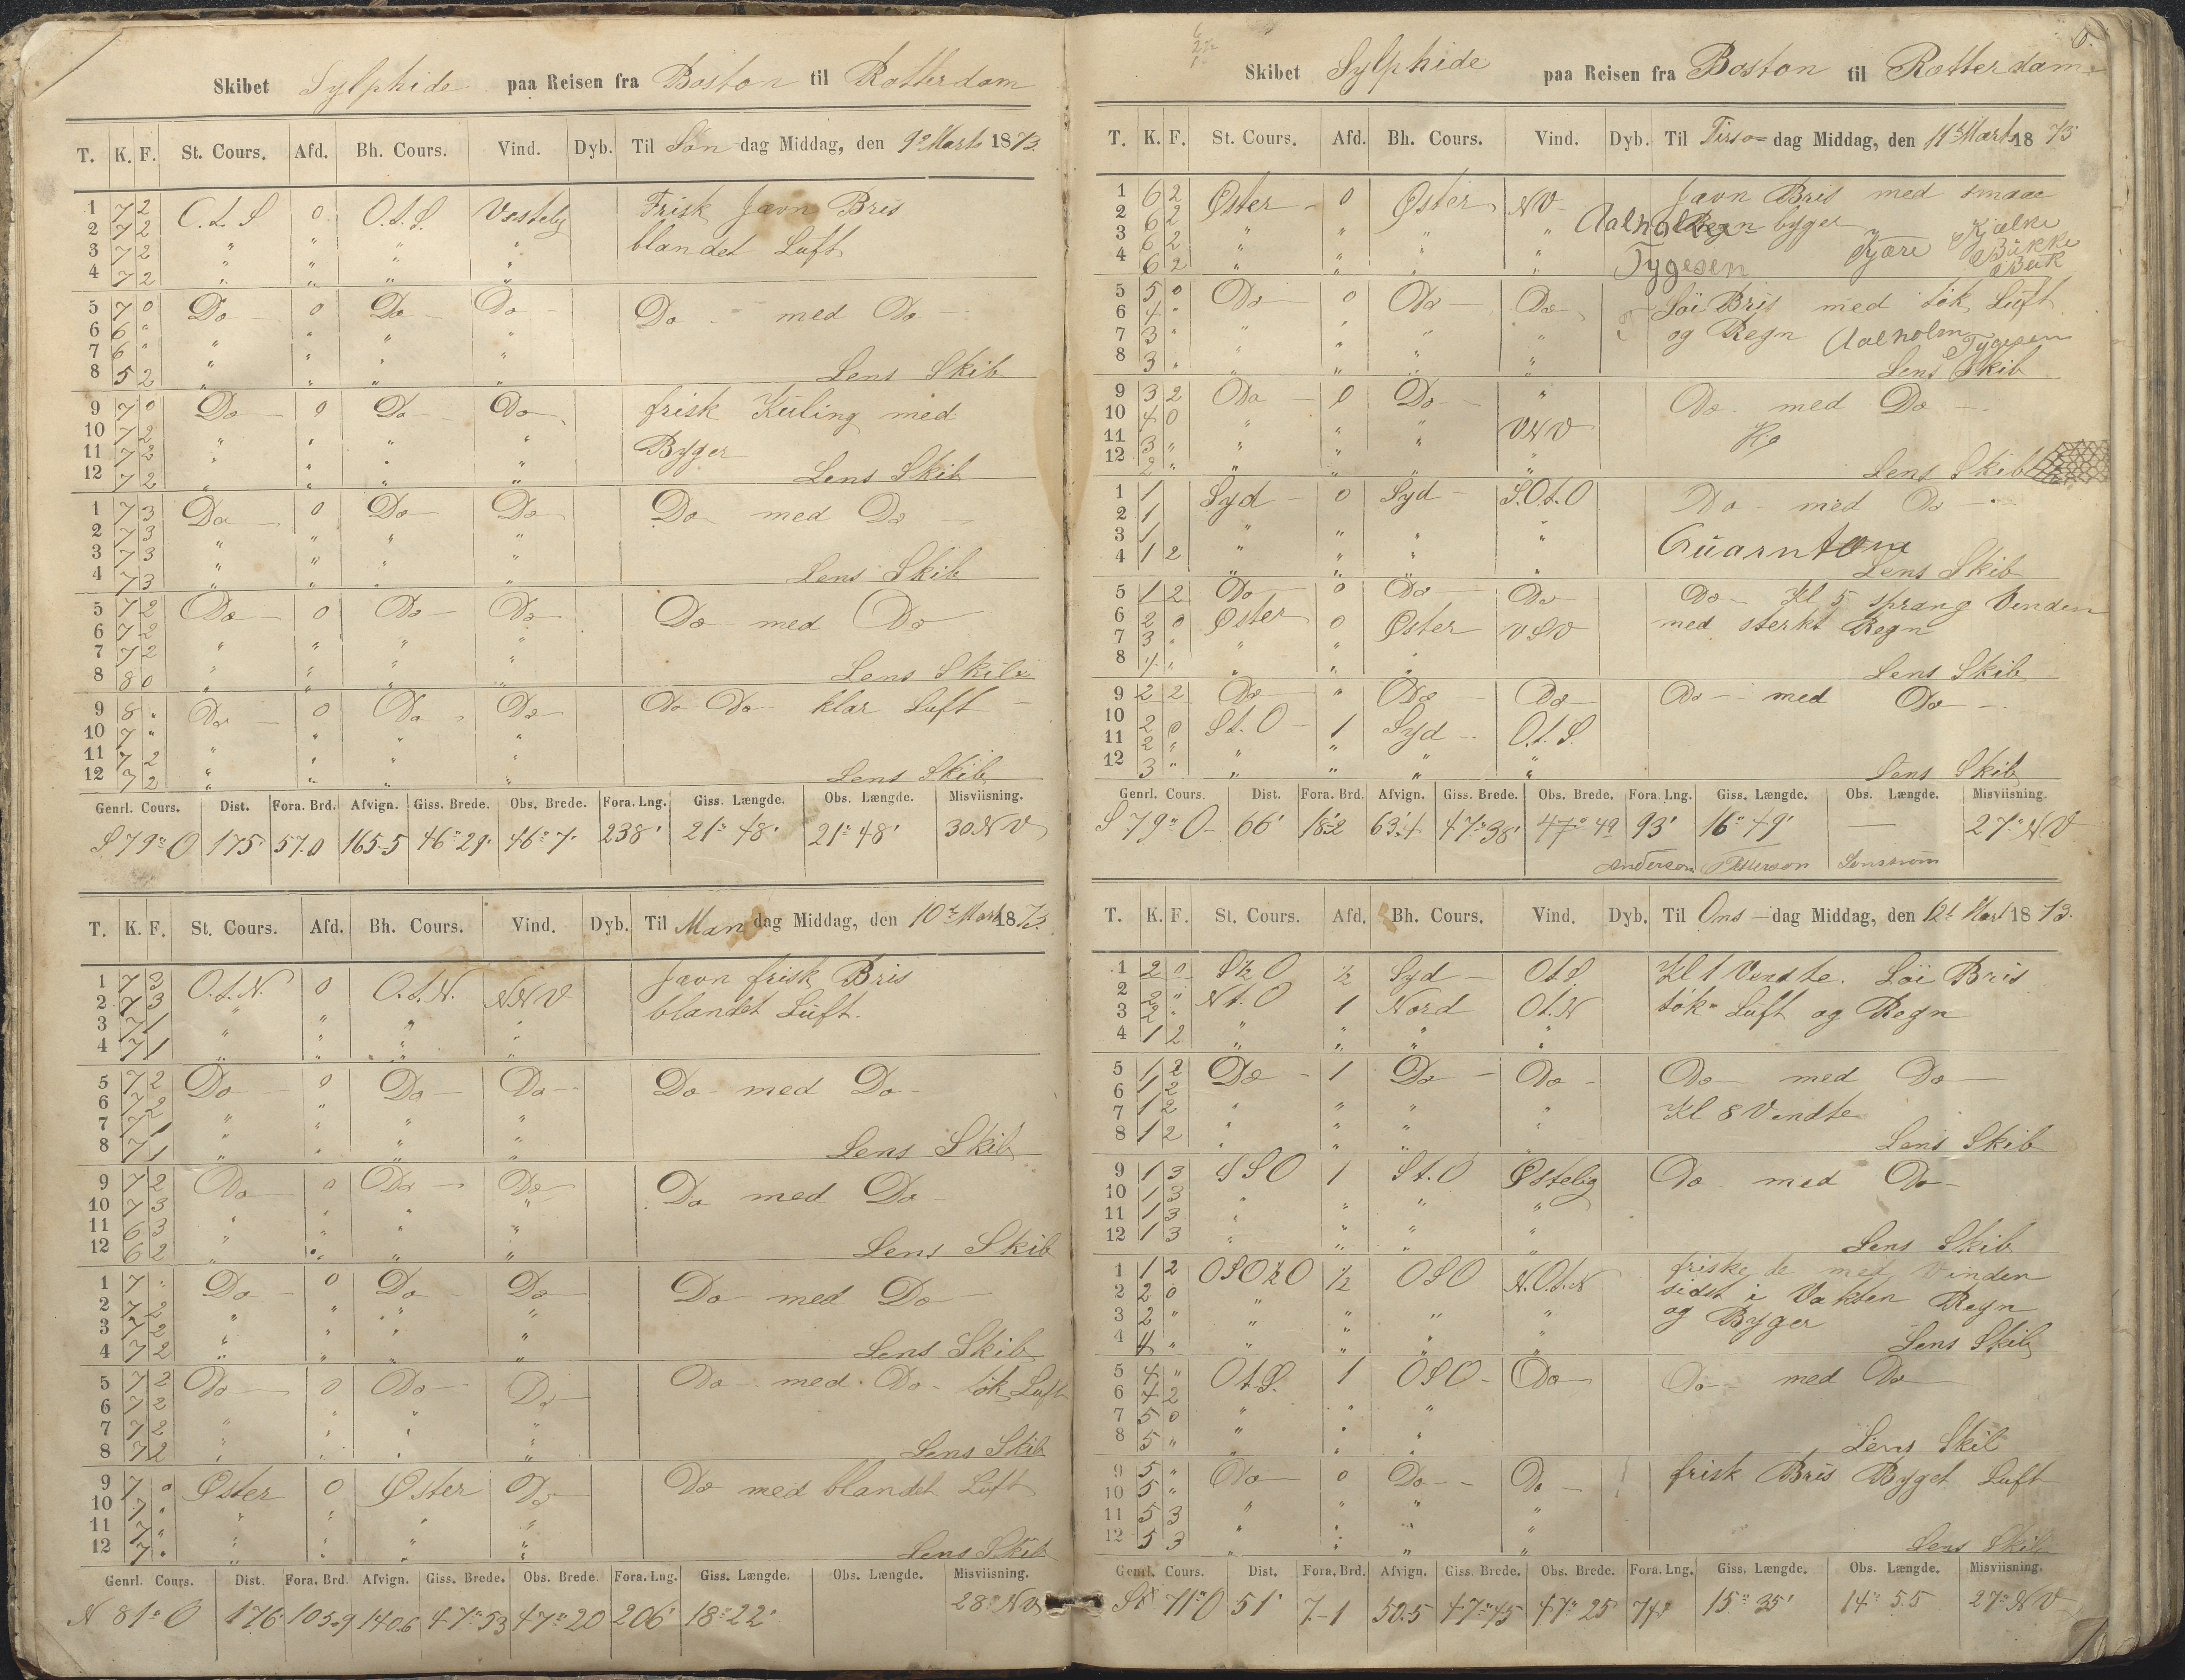 Skibet Sylphide paa Reisen fra Boston til Rotterdam
T. K. F. St. Cours. Afd. Bh. Cours. Vind. Dyb. Til Søn dag Middag, den 9de Marts 1873.
1 7 2 O.t.S 0 O.t.S. Vestelig Frisk Jævn Bris
2 7 2 " " " " blandet Luft
3 7 2 " " " "
4 7 2 " " " "
5 7 0 Do 0 Do Do Do med Do
6 6 " " " " "
7 6 " " " " "
8 5 2 " " " " Lens Skib
9 7 0 Do 0 Do Do frisk Kuling med
10 7 2 " " " " Byger
11 7 2 " " " "
12 7 2 " " " " Lens Skib
1 7 3 Do 0 Do Do Do med Do
2 7 3 " " " "
3 7 3 " " " "
4 7 3 " " " " Lens Skib
5 7 2 Do 0 Do Do Do med Do
6 7 2 " " " "
7 7 2 " " " "
8 8 0 " " " " Lens Skib
9 8 " Do 0 Do Do Do Do klar Luft
10 7 " " " " "
11 7 2 " " " "
12 7 2 " " " " Lens Skib
Genrl. Cours. Dist. Fora. Brd. Afvign. Giss. Brede. Obs. Brede. Fora. Lng. Giss. Længde. Obs. Længde. Misviisning.
S 79° O 175' 57.0 165.5 46° 29' 46° 7' 238' 21° 48' 21° 48' 30 NV
T. K. F. St. Cours. Afd. Bh. Cours. Vind. Dyb. Til Man dag Middag, den 10de Marts 1873.
1 7 3 O.t.N. 0 O.t.N. NNV Jævn frisk Bris
2 7 3 " " " " blandet Luft.
3 7 1 " " " "
4 7 1 " " " "
5 7 2 Do 0 Do Do Do med Do
6 7 2 " " " "
7 7 1 " " " "
8 7 1 " " " " Lens Skib
9 7 2 Do 0 Do Do Do med Do
10 7 3 " " " "
11 6 3 " " " "
12 6 2 " " " " Lens Skib
1 7 " Do 0 Do Do Do med Do
2 7 2 " " " "
3 7 2 " " " "
4 7 2 " " " " Lens Skib
5 7 2 Do 0 Do Do Do med Do tök Luft
6 7 2 " " " "
7 7 2 " " " "
8 7 2 " " " " Lens Skib
9 7 0 Øster 0 Øster Do Do med blandet Luft
10 7 " " " " "
11 7 " " " " "
12 7 " " " " " Lens Skib
Genrl. Cours. Dist. Fora. Brd. Afvign. Giss. Brede. Obs. Brede. Fora. Lng. Giss. Længde. Obs. Længde. Misviisning.
N 81° O 176 105.9 140.6 47° 53 47° 20 206' 18° 22' 28° NV
6.
Skibet Sylphide paa Reisen fra Boston til Rotterdam
T. K. F. St. Cours. Afd. Bh. Cours. Vind. Dyb. Til Tirs dag Middag, den 11te Marts 1873
1 6 2 Øster 0 Øster NV Jævn Bris med smaae
2 6 2 Aalholm Regn byger Kjælke
3 6 2 " " " " Kjære Bükke
4 6 2 " " " " Tygesen Bük
5 5 0 Do 0 Do Do Löi Bris med tök Luft
6 4 " " " " " og Regn Aalholm
7 3 " " " " " Tygesen
8 3 " " " " " Lens Skib
9 3 2 Do 0 Do " Do med Do
10 4 0 " " " VNV
11 3 " " " "
12 2 " " " " " Lens Skib
1 1 Syd 0 Syd S.O.t.O Do med Do
2 1
3 1 " " " "
4 1 2 " " " " Lens Skib
5 1 2 Do 0 Do Do Do Kl 5 sprang Vinden
6 2 0 Øster 0 Øster VSV med sterkt Regn
7 3 " " " "
8 4 " " " " Lens Skib
9 2 2 Do " Do Do Do med Do
10 2 0 St.O 1 Syd O.t.S.
11 2 " " " "
12 3 " " " " " Lens Skib
Genrl. Cours. Dist. Fora. Brd. Afvign. Giss. Brede. Obs. Brede. Fora. Lng. Giss. Længde. Obs. Længde. Misviisning.
S 79° O 66' 18.2 63.4 47° 38' 47° 49 93' 16° 49' — 27° NV
Anderson Petterson
T. K. F. St. Cours. Afd. Bh. Cours. Vind. Dyb. Til Ons dag Middag, den 12t Mart 1873.
1 2 0 S½O ½ Syd O.t.S Kl 1 Vendte. Löi Bris
2 2 " Nt.O 1 Nord O.t.N tök Luft og Regn
3 2 "
4 1 2 " " " "
5 1 2 Do 1 Do Do Do med Do
6 1 2
7 1 2 " " " " Kl 8 Vendte
8 1 2 " " " " Lens Skib
9 1 3 SSO 1 St.O Østelig Do med Do
10 1 3 " " " "
11 1 3 " " " "
12 1 3 " " " " Lens Skib
1 1 2 OSO½O ½ OSO N.O.t.N friskede med Vinden
2 2 0 " " " " sidst i Vakten Regn
3 2 " " " " " og Byger
4 4 " " " " " Lens Skib
5 4 " O.t.S. 1 OSO Do Do med Do
6 4 2
7 5 0 " " "
8 5 " " " " Lens Skib
9 5 " Do 0 Do Do frisk Bris Byget Luft
10 5 " " " " "
11 5 3 " " " "
12 5 3 " " " " Lens Skib
Genrl. Cours. Dist. Fora. Brd. Afvign. Giss. Brede. Obs. Brede. Fora. Lng. Giss. Længde. Obs. Længde. Misviisning.
71° O 51' 7-1 50.5 47° 45 47° 25' 74' 15° 35' 14° 55 27° NV